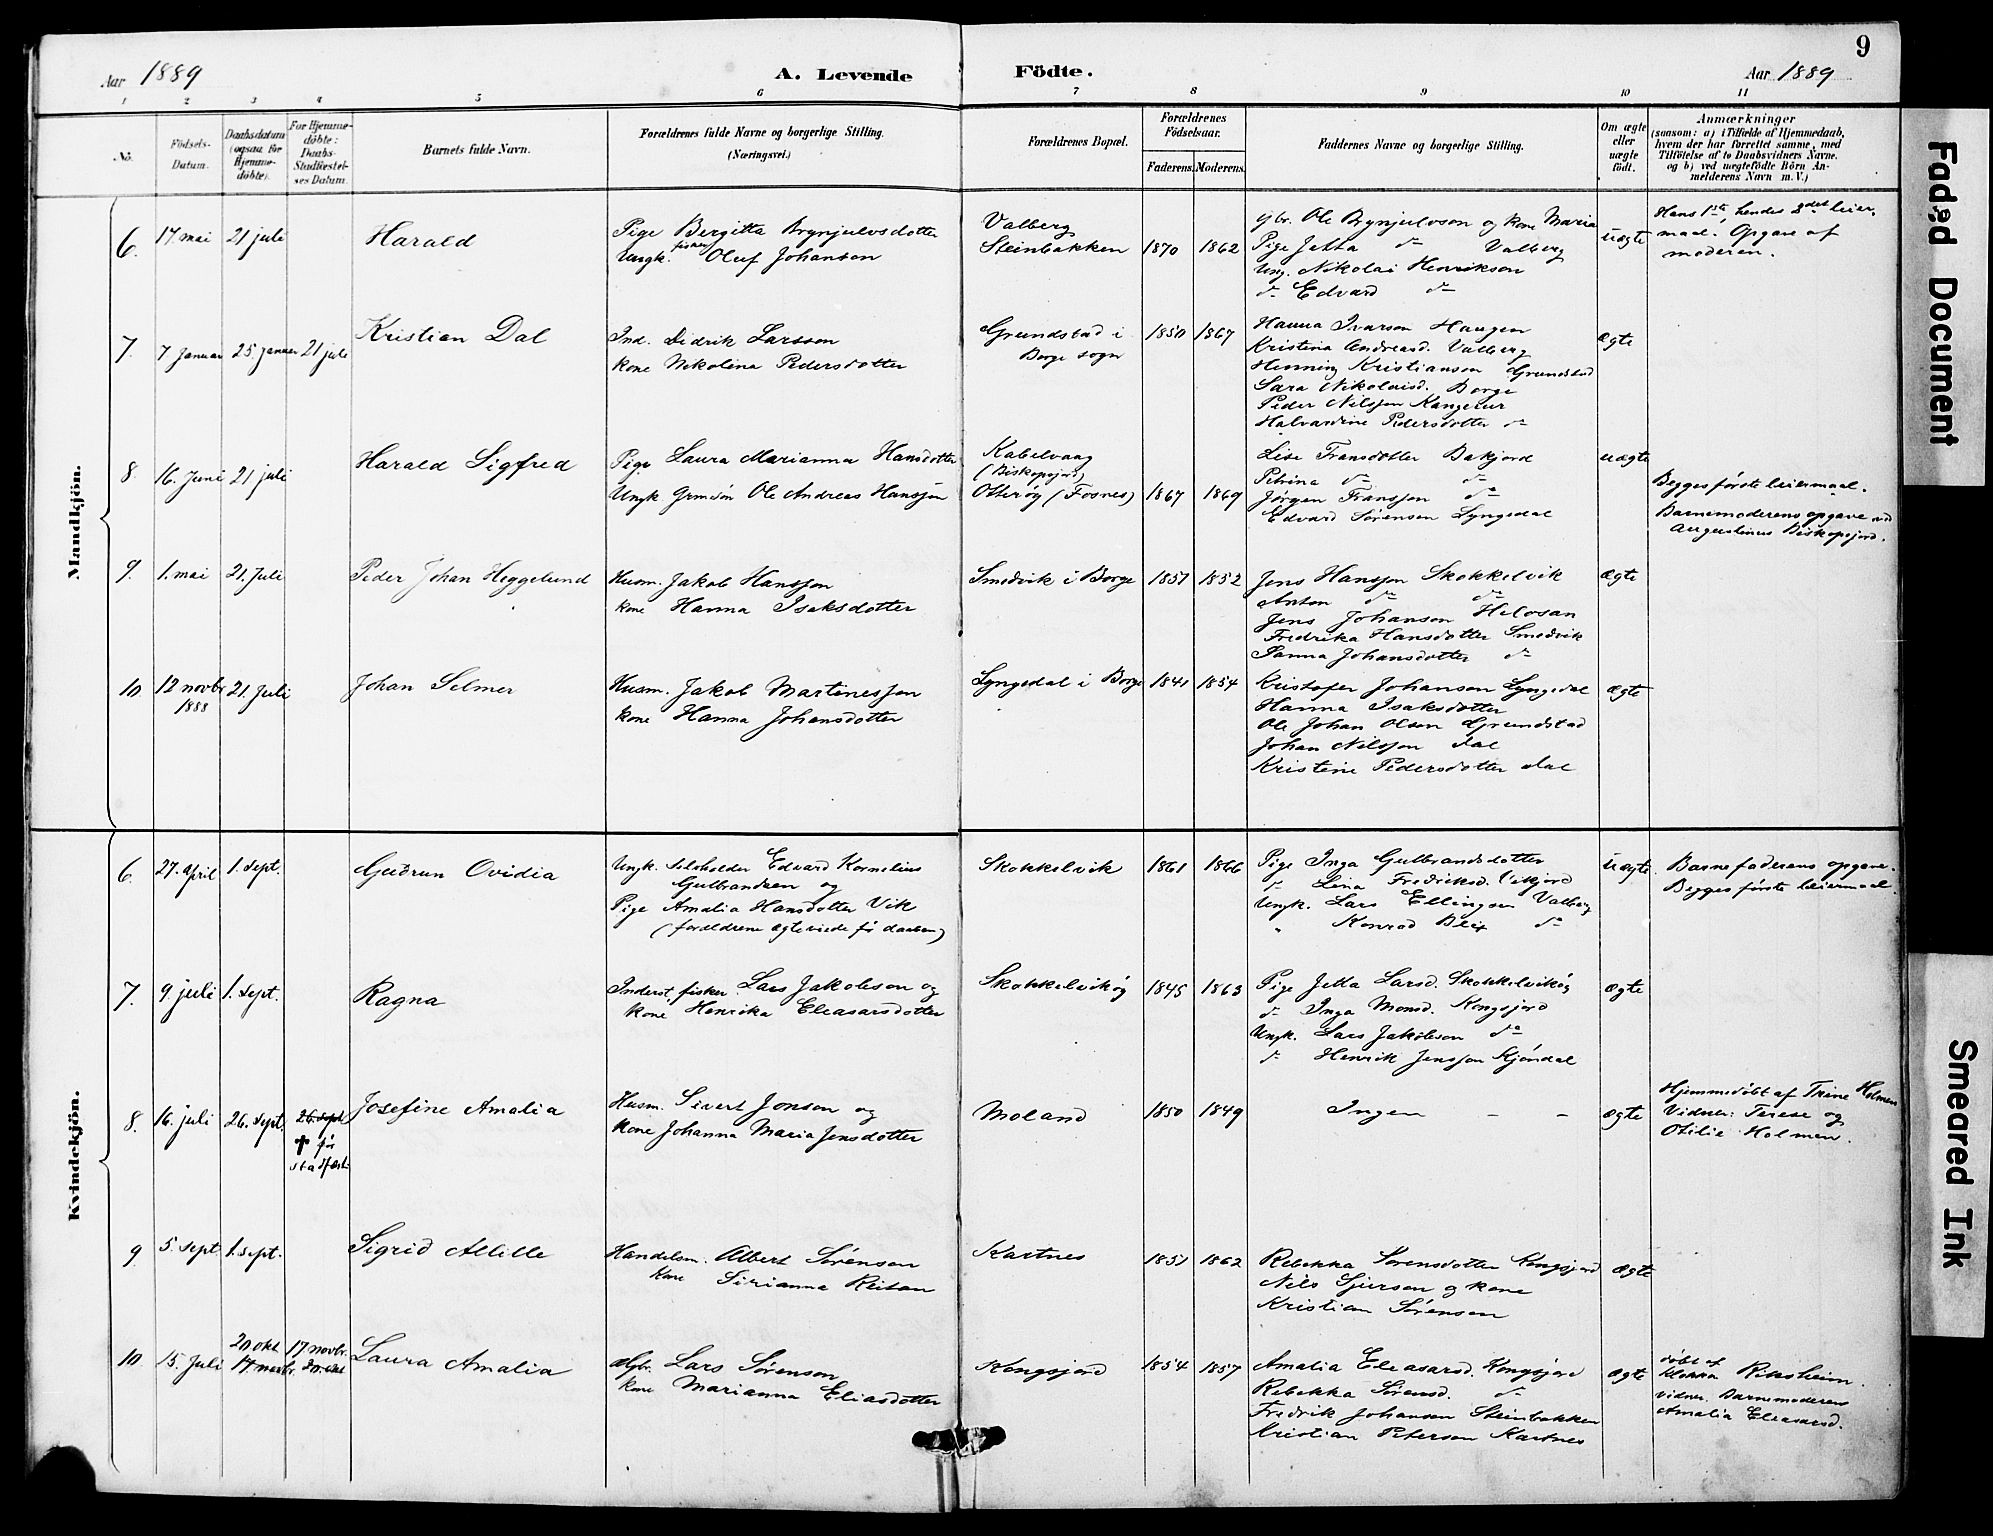 9
Aar 1889 A. Levende Födte. Aar 1889
1 2 3 4 5 6 7 8 9 10 11
No. Födsels-Datum. Daabsdatum (ogsaa for Hjemmedöbte). For Hjemmedöbte: Daabs-Stadfæstelses Datum. Barnets fulde Navn. Forældrenes fulde Navne og borgerlige Stilling. (Næringsvei.) Forældrenes Bopæl. Forældrenes Födselsaar. Faderens. Moderens. Faddernes Navne og borgerlige Stilling. Om ægte eller uægte födt. Anmærkninger (saasom: a) i Tilfælde af Hjemmedaab, hvem der har forrettet samme, med Tilföielse af to Daabsvidners Navne, og b) ved uægtefödte Börn Anmelderens Navn m. V.)
Mandkjön.
6. 17 mai 21 juli Harald
Pige Bergitta Brynjulvsdotter
Ungk. fisker Oluf Johanson
Valberg
Steinbakken 1870 1862
gbr. Ole Brynjulvson og kone Maria
Pige Jetta do Valberg
Ung. Nikolai Henrikson
do Edvard do
uægte
Hans 1ste, hendes 2det leier-
maal. Opgave af
moderen.
7. 7 Januar 25. januar 21 juli Kristian Dal
Ind. Didrik Larsson
kone Nikolina Pedersdotter
Grundstad i
Borge sogn 1850 1867
Hanna Ivarson Haugen
Kristina Andreasd. Valberg
Henning Kristianson Grundstad
Sara Nikolaisd. Borge
Peder Nilsson
Halvardine Pedersdotter do
ægte
8 16. Juni 21 juli Harald Sigfred
Pige Laura Marianna Hansdotter
Ungk. Ole Andreas Hansson
Kabelvaag
(Biskopsjord)
Otterøy (Fosnes) 1867 1869
Lise Fransdotter Bakjord
Petrina do do
Jørgen Fransson do
Edvard Sørensen Lyngedal
uægte
Begges første leiermaal.
Barnemoderens opgave ved
Augustinus Biskopsjord.
9. 1. mai 21. Juli Peder Johan Heggelund
Husm. Jakob Hansson
kone Hanna Isaksdotter
Smedvik i Borge 1851 1852
Jens Hansson Skokkelvik
Anton do do
Jens Johanson Helosan
Fredrika Hansdotter Smedvik
Janna Johansdotter do
ægte
10 12 novbr 1888 21. Juli Johan Selmer
Husm. Jakob Martinesson
kone Hanna Johansdotter
Lyngedal i Borge 1841 1854
Kristofer Johanson Lyngedal
Hanna Isaksdotter
Ole Johan Olson Grundstad
Johan Nilsson dal
Kristine Pedersdotter dal
ægte
Kvindekjön.
6. 27. april 1. sept. Gudrun Ovidia
Ungk. Edvard Kornelius
Gulbrandsen og
Pige Amalia Hansdotter Vik
(forældrene ægteviede før daaben)
Skokkelvik 1861 1866
Pige Inga Gulbrandsdotter
do Lina Fredriksd. Vikjord
Ungk. Lars Ellingsen Valberg
" Konrad Blix do
uægte
Barnefaderens opgave.
Begges første leiermaal.
7. 9. juli 1. sept. Ragna
Inderst, fisker Lars Jakobson og
kone Henrika Eleasarsdotter
Skokkelvikøy 1845 1863
Pige Jetta Larsd. Skokkelvikøy
do Inga Monsd. Kongsjord
Ungk. Lars Jakobson do
do Henrik Jensson Kjøndal
ægte
8. 16. juli 26. sept. 26. sept † før stadfæst. Josefine Amalia
Husm. Sivert Jonson og
kone Johanna Maria Jensdotter
Moland 1850 1849
Ingen - -
ægte
Hjemmedøbt af Trine Holmen
Vidner: Terese og
Otilie Holmen.
9 5. sept. 1. sept. Sigrid Alille
Handelsm. Albert Sørenson
kone Sirianna Reitan
Kartnes 1851 1862
Rebekka Sørensdotter Kongsjord
Nils Sjurson og kone
Kristian Sørenson
ægte
10. 15. Juli 20 okt 17 novbr. 17 novbr. 20 okt Laura Amalia
Gbr. Lars Sørenson
kone Marianna Eliasdotter
Kongsjord 1854 1857
Amalia Eleasarsd. Kongsjord
Rebekka Sørensd. do
Fredrik Johansen Steinbakken
Kristian Peterson Kartnes
ægte
døbt af
Riksheim.
vidner. Barnemoderens
Amalia Eleasarsd.
Faded Document
Smeared Ink